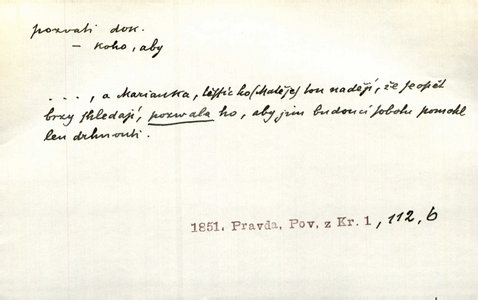 pozvati dok.
– koho, aby
...., a Marianka, těšíc ho (Matěje) tou nadějí, že se opět
brzy shledají, pozvala ho, aby jim budoucí sobotu pomohl
len drhnouti.
1851. Pravda, Pov. z Kr. 1, 112, b